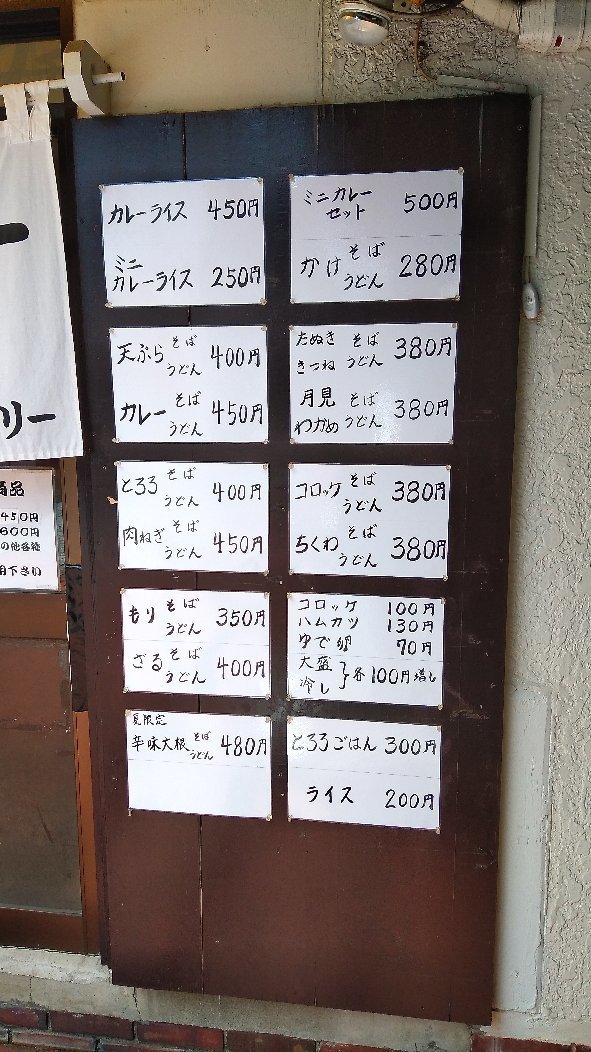 カレーライス 450円
ミニ
カレーライス 250円
ミニカレー
セット 500円
かけ そば
うどん 280円
天ぷら そば
うどん 400円
カレー そば
うどん 450円
たぬき そば
きつね うどん 380円
月見 そば
わかめ うどん 380円
とろろ そば
うどん 400円
肉ねぎ そば
うどん 450円
コロッケ そば
うどん 380円
ちくわ そば
うどん 380円
もり そば
うどん 350円
ざる そば
うどん 400円
コロッケ 100円
ハムカツ 130円
ゆで卵 70円
大盛
冷し }各100円増し
夏限定
辛味大根 そば
うどん 480円
とろろごはん 300円
ライス 200円
ー
リー
商品
450円
600円
の他各種
用下さい